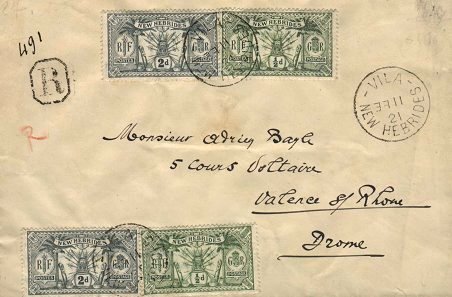 491
R
NEW HEBRIDES
RF
GR
POSTES
2d
POSTAGE
NEW HEBRIDES
RF
GR
POSTES
½d
POSTAGE
VILA
21
NEW HEBRIDES
R
Monsieur Adrien Bayle
5 Cours Voltaire
Valence s/ Rhone
Drome
NEW HEBRIDES
RF
GR
POSTES
2d
POSTAGE
NEW HEBRIDES
RF
GR
POSTES
½d
POSTAGE